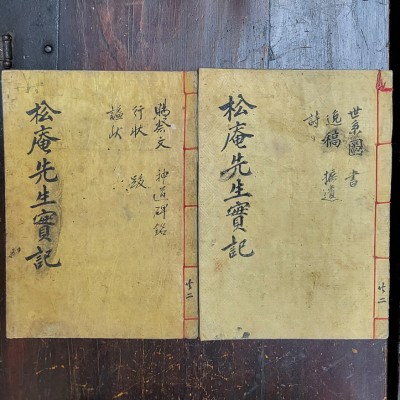 松庵先生實記
世系圖 書
逸稿 摭遺
詩
共二
松庵先生實記
賜祭文 神道碑銘
行狀 跋
諡狀
共二